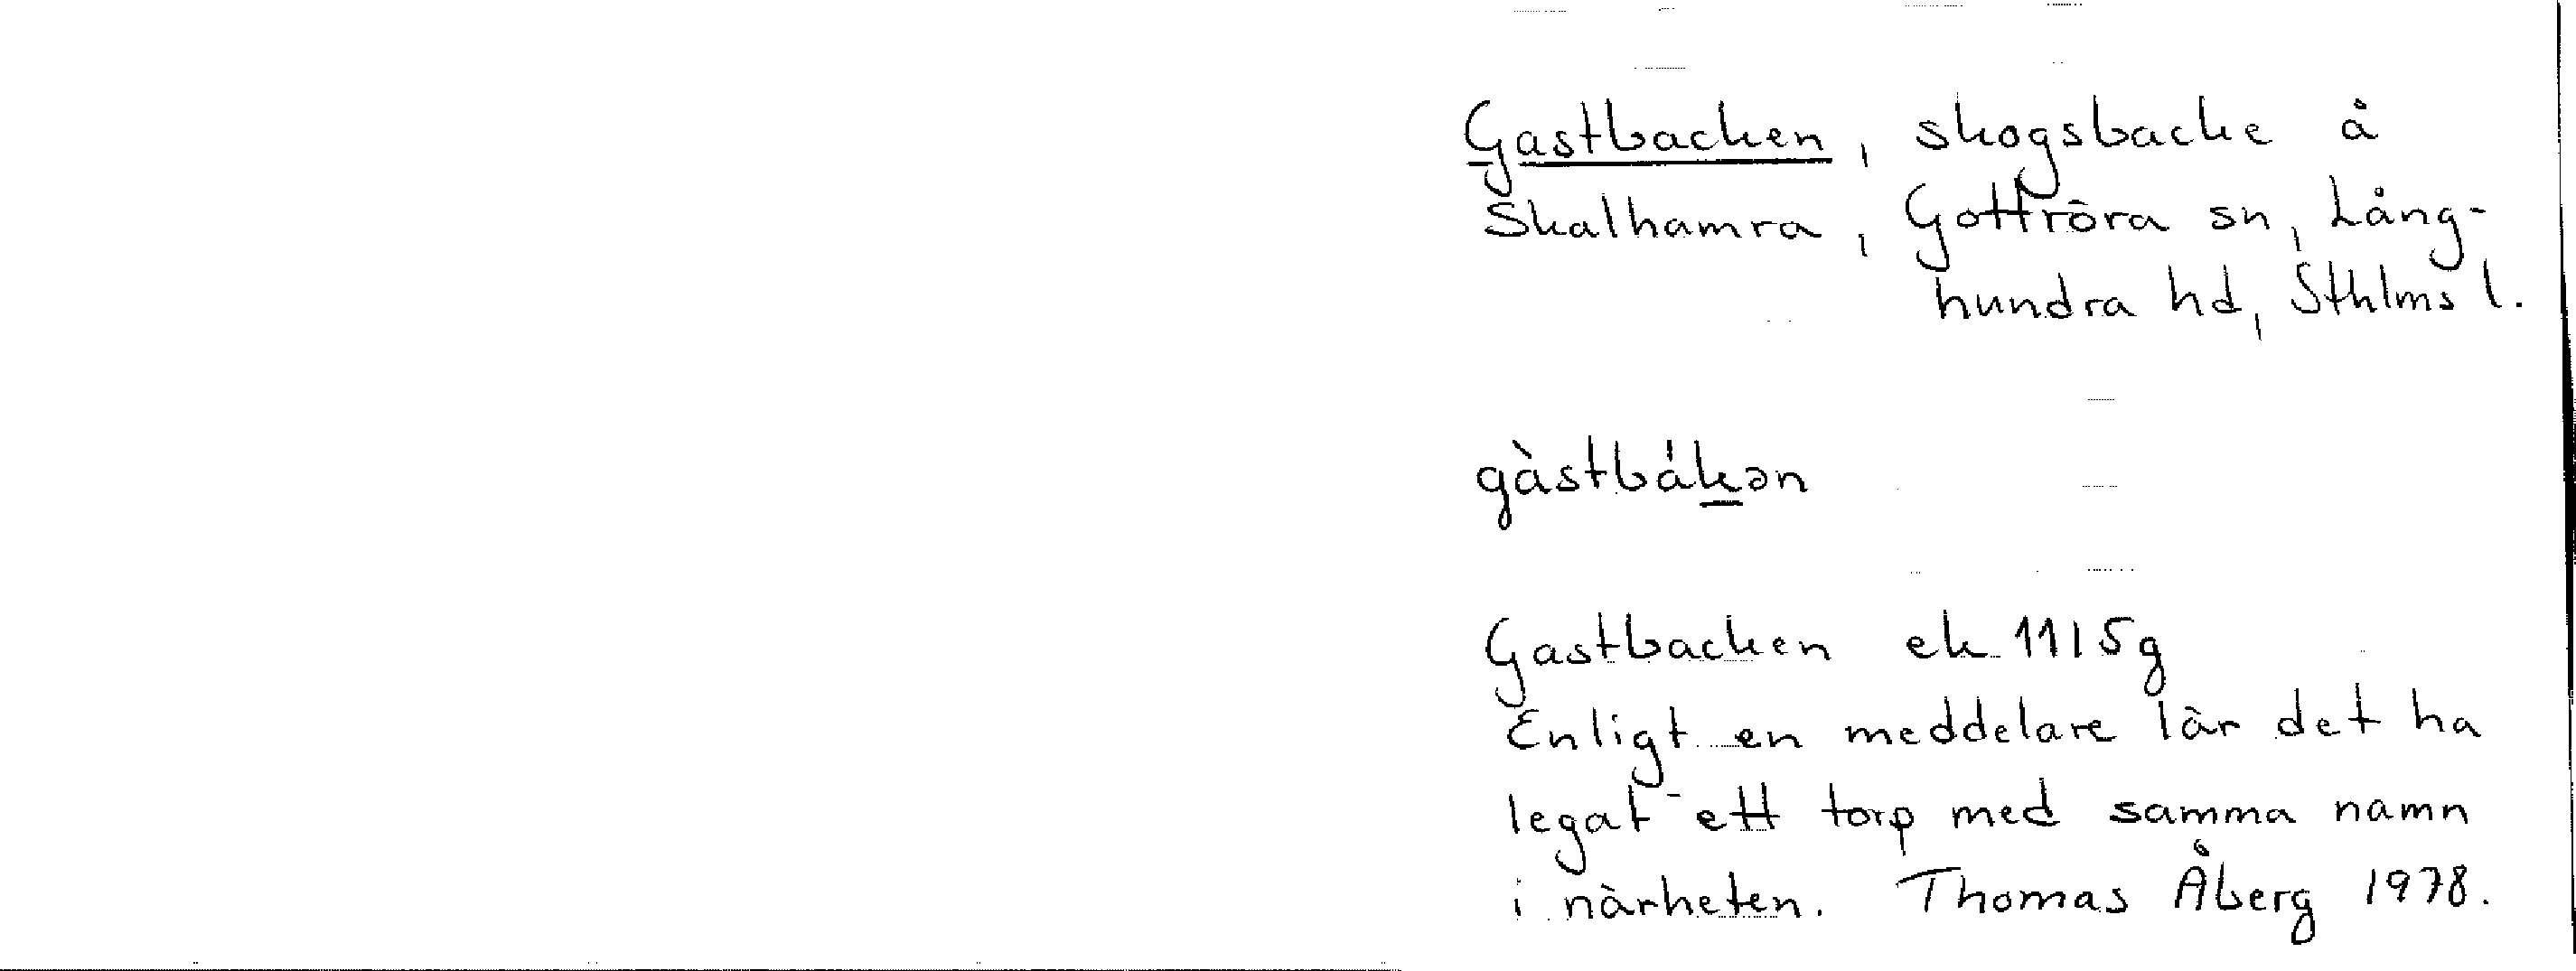 Gastbacken, skogsbacke å
Skalhamra, Gottröra sn, Lång-
hundra hd, Sthlms l.
gàstbák̲ən
Gastbacken ek 11I5g
Enligt en meddelare lär det ha
legat ett torp med samma namn
i närheten. Thomas Åberg 1978.